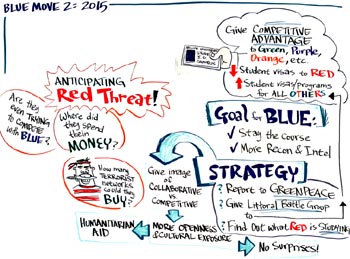 BLUE MOVE 2 = 2015
Give COMPETITIVE
ADVANTAGE
to Green, Purple,
Orange, etc.
↓ Student visas to RED
↑ Student visas/programs
for ALL OTHERS
ANTICIPATING
Red Threat!
Are they
even TRYING
to COMPETE
with BLUE?
Where did
they spend
their
MONEY?
How many
TERRORIST
networks could they
BUY?
Goal for BLUE:
✓ Stay the Course
✓ More Recon & Intel
STRATEGY
? Report to GREENPEACE
? Give Littoral Battle Group
to
? Find out what RED is STUDYING
Give image
of
COLLABORATIVE
vs
COMPETITIVE
MORE OPENNESS
& CULTURAL EXPOSURE
HUMANITARIAN
AID
No Surprises!